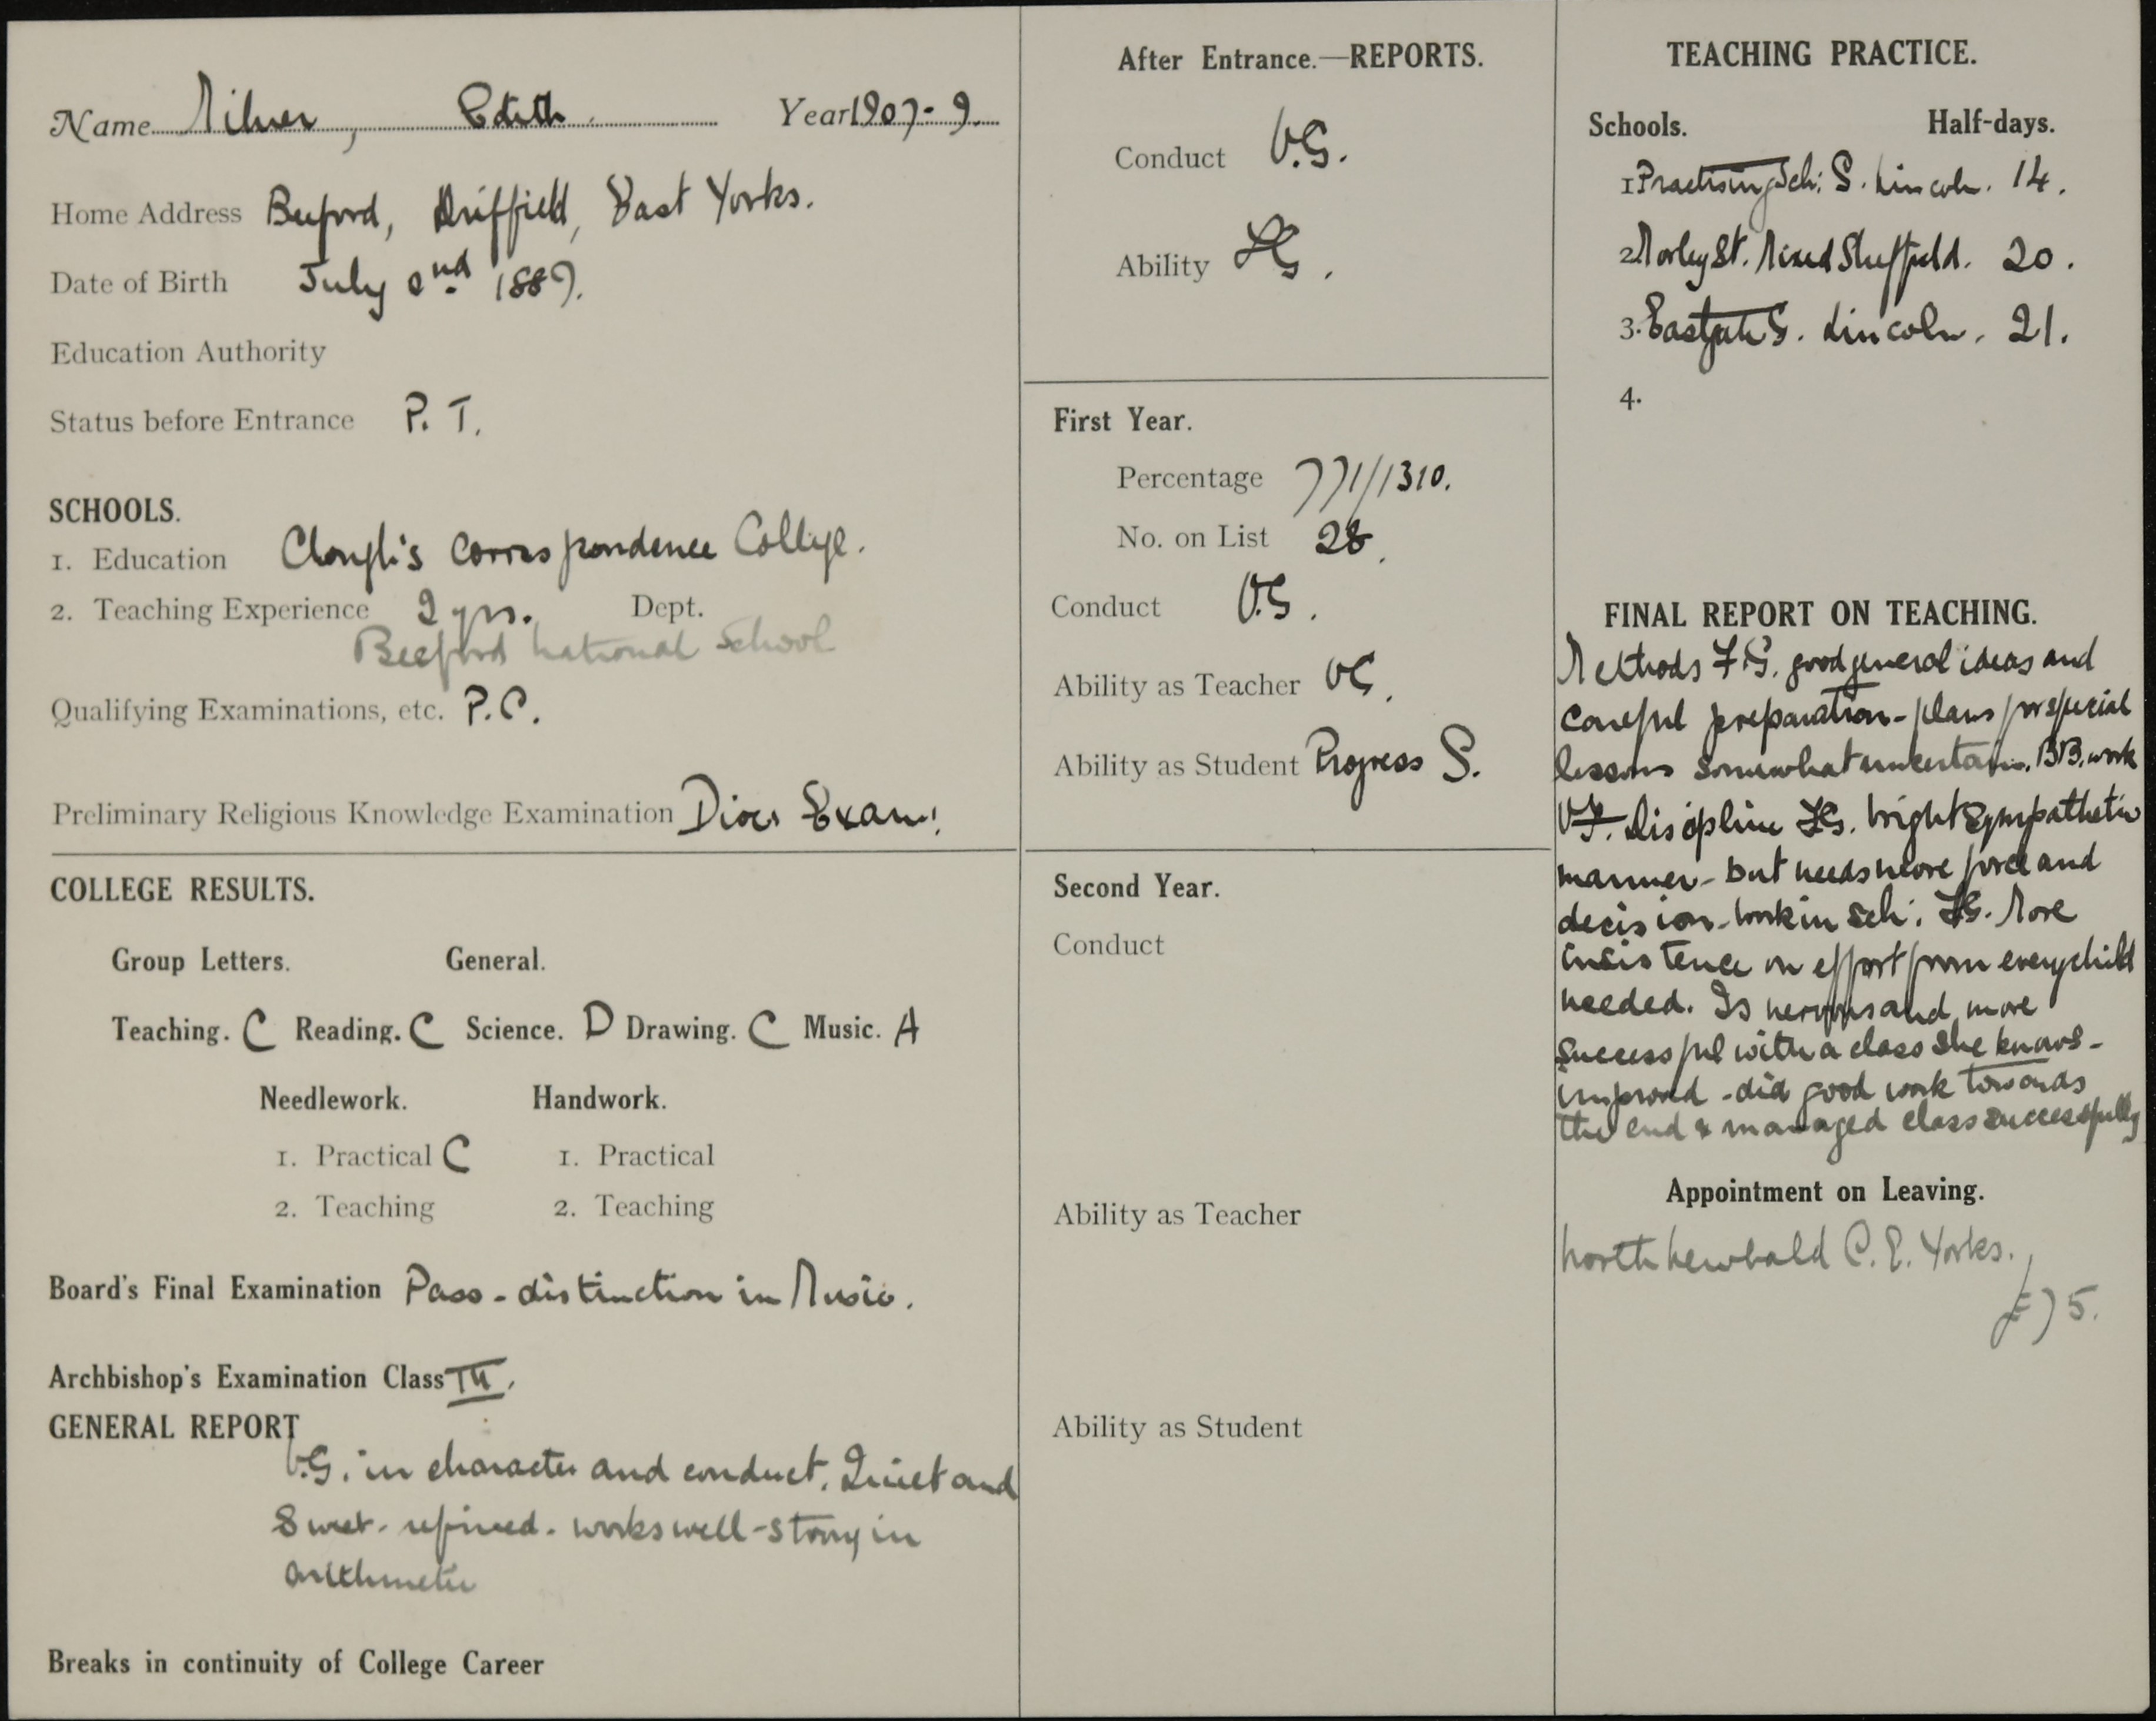 Name Milner, Edith. Year 1907-9.
Home Address Beeford, Driffield, East Yorks.
Date of Birth July 2nd 1887.
Education Authority
Status before Entrance P. T.
SCHOOLS.
1. Education Clough's Correspondence College.
2. Teaching Experience 2 yrs. Dept.
Beeford National School
Qualifying Examinations, etc. P.C.
Preliminary Religious Knowledge Examination Dioc. Exam.
COLLEGE RESULTS.
Group Letters. General.
Teaching. C Reading. C Science. D Drawing. C Music. A
Needlework. Handwork.
1. Practical C 1. Practical
2. Teaching 2. Teaching
Board's Final Examination Pass - distinction in Music.
Archbishop's Examination Class III.
GENERAL REPORT
V.G. in character and conduct. Quiet and
sweet - refined - works well - strong in
arithmetic
Breaks in continuity of College Career
After Entrance.—REPORTS.
Conduct V.G.
Ability F.G.
First Year.
Percentage 771/1310.
No. on List 28.
Conduct V.G.
Ability as Teacher VG.
Ability as Student Progress S.
Second Year.
Conduct
Ability as Teacher
Ability as Student
TEACHING PRACTICE.
Schools. Half-days.
1 Practising Sch: S. Lincoln. 14.
2 Morley St. Mixed Sheffield. 20.
3. Eastgate G. Lincoln. 21.
4.
FINAL REPORT ON TEACHING.
Methods F.G. good general ideas and
careful preparation - plans for special
lessons somewhat uncertain. BB. work
V.F. Discipline F.G. bright sympathetic
manner - but needs more force and
decision - work in Sch: F.G. More
insistence on effort from every child
needed. Is nervous and more
successful with a class she knows -
improved - did good work towards
the end & managed class successfully
Appointment on Leaving.
North Newbald C.E. Yorks.,
£75.